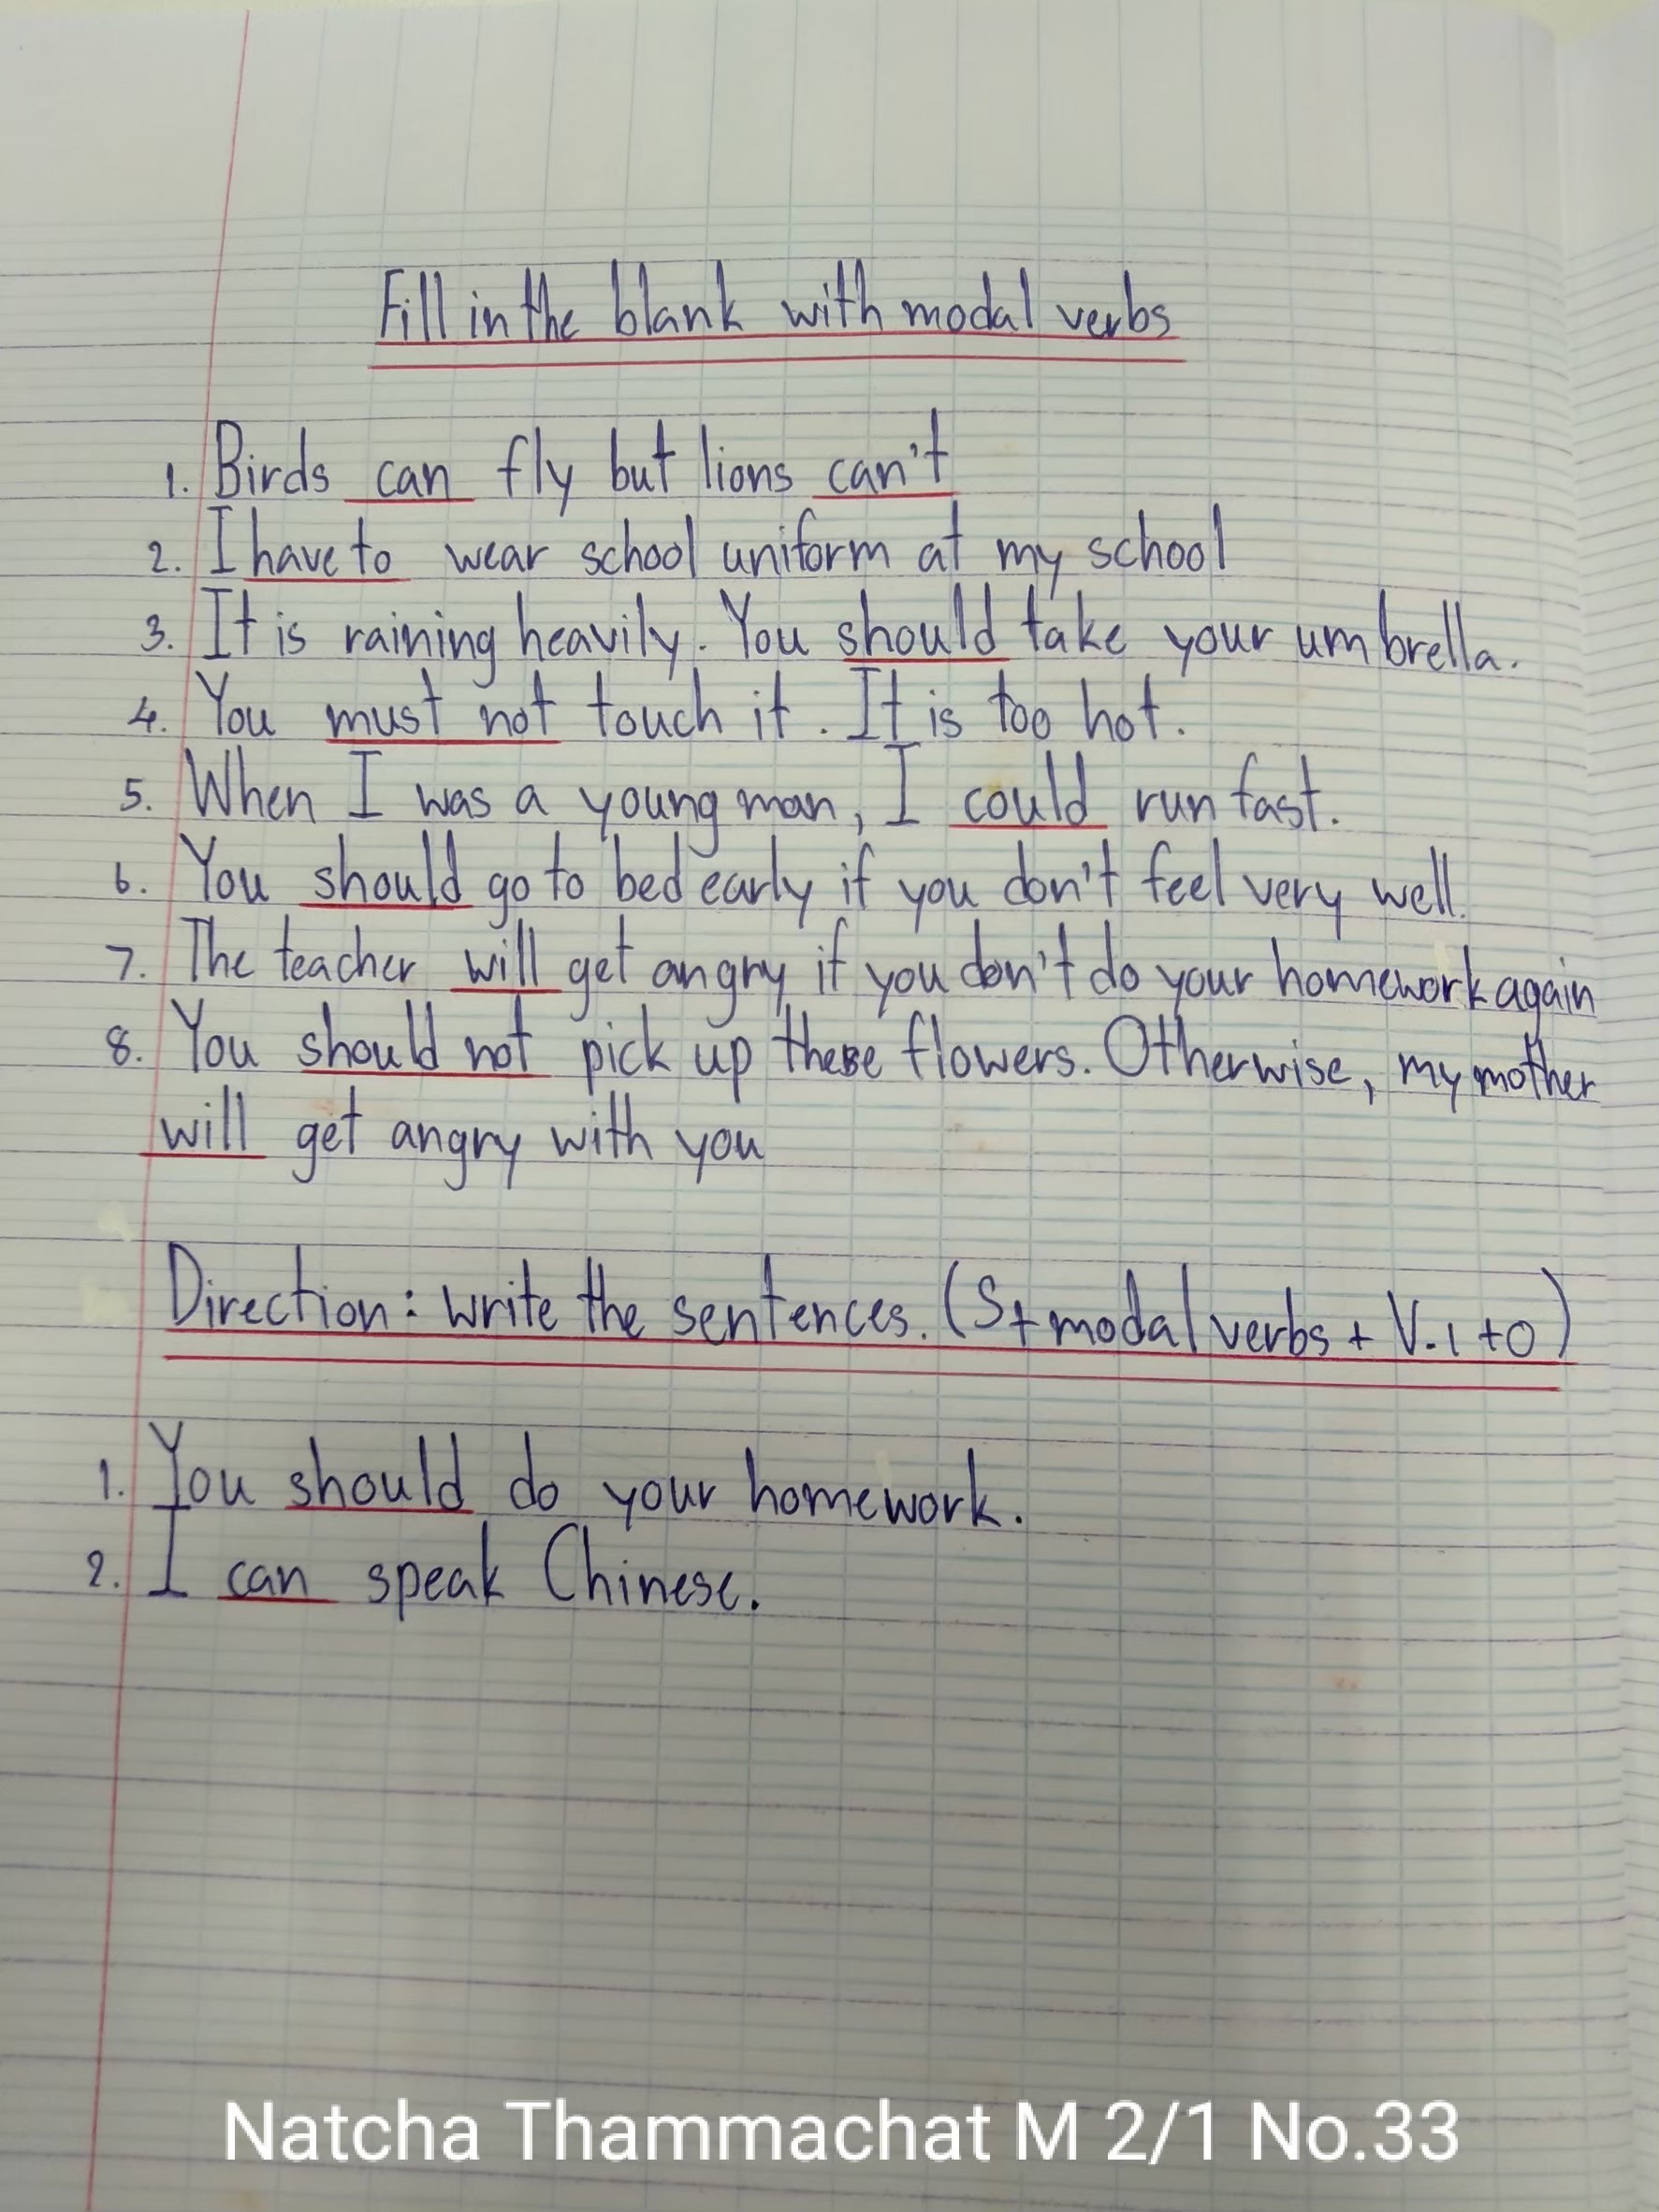 Fill in the blank with modal verbs
1. Birds can fly but lions can't
2. I have to wear school uniform at my school
3. It is raining heavily. You should take your umbrella.
4. You must not touch it. It is too hot.
5. When I was a young man, I could run fast.
6. You should go to bed early if you don't feel very well.
7. The teacher will get angry if you don't do your homework again
8. You should not pick up these flowers. Otherwise, my mother
will get angry with you
Direction: write the sentences. (S + modal verbs + V.1 + O)
1. You should do your homework.
2. I can speak Chinese.
Natcha Thammachat M 2/1 No.33